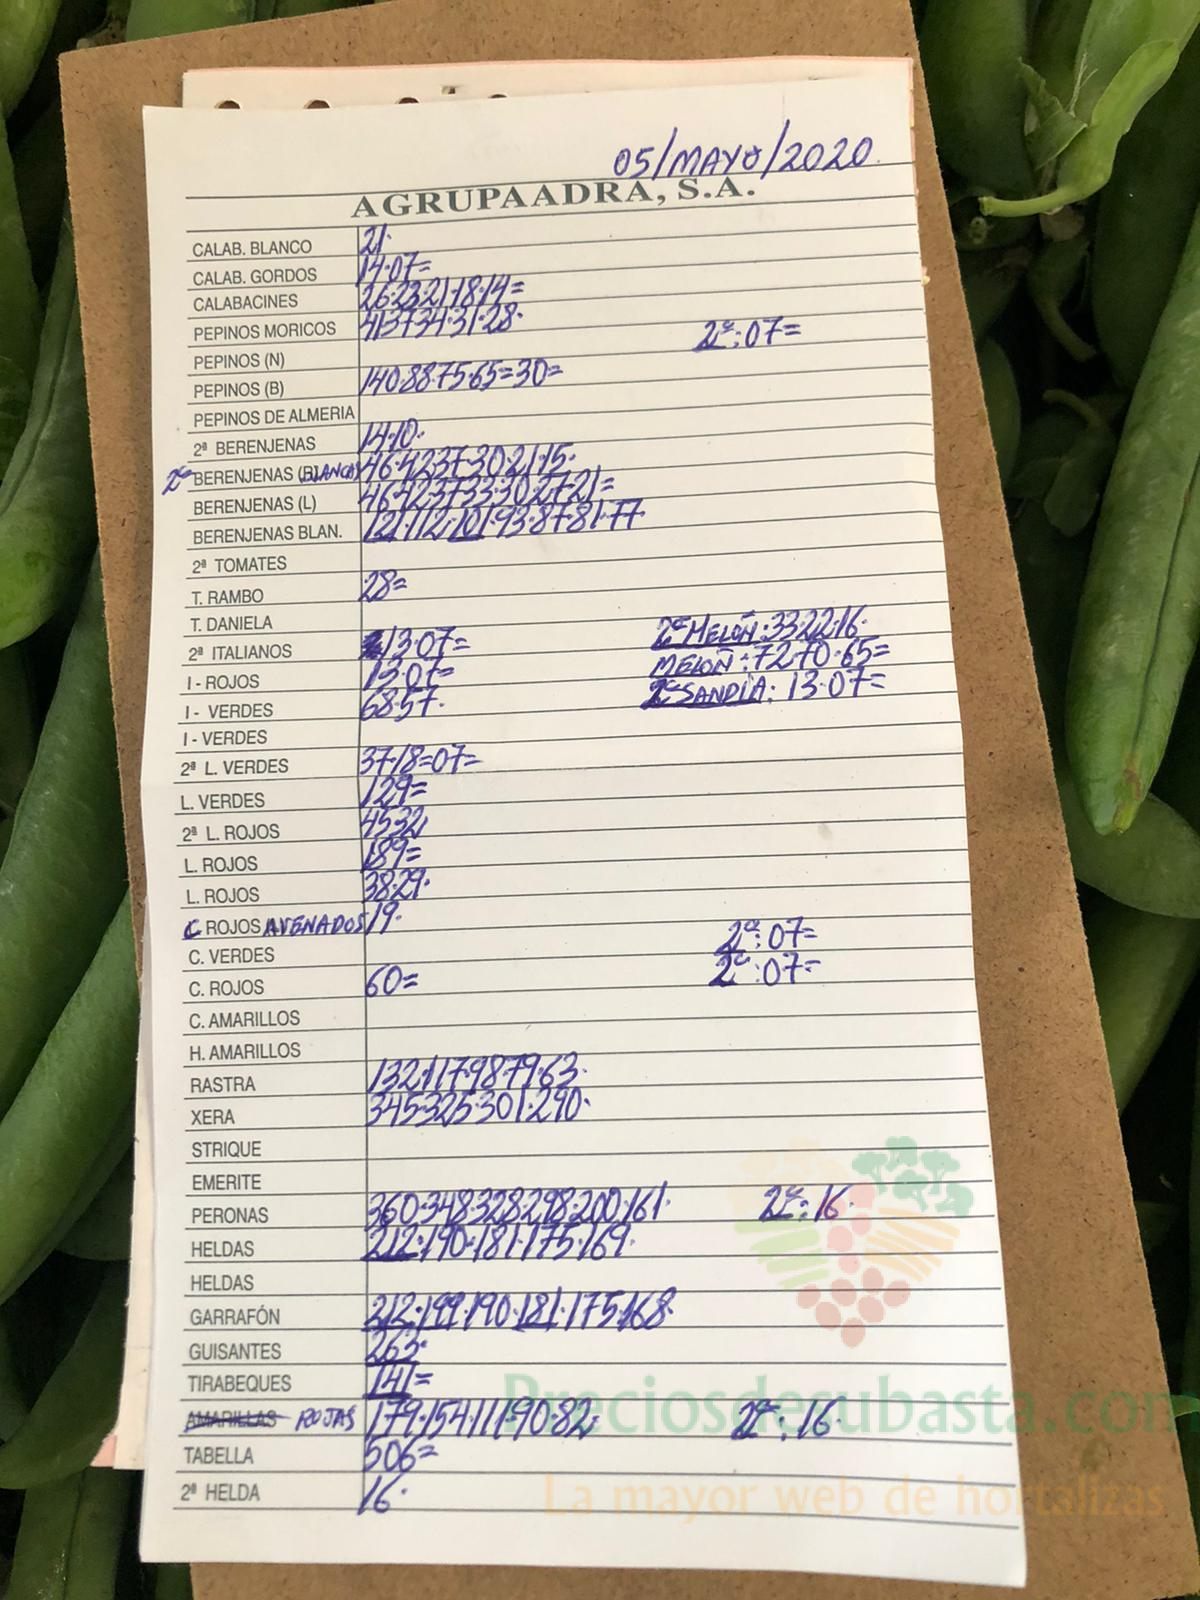 05/MAYO/2020
AGRUPAADRA, S.A.
CALAB. BLANCO 21·
CALAB. GORDOS 14·07=
CALABACINES 26·23·21·18·14=
PEPINOS MORICOS 41·37·34·31·28· 2ª:07=
PEPINOS (N)
PEPINOS (B) 140·88·75·65=30=
PEPINOS DE ALMERIA
2ª BERENJENAS 14·10·
2ª BERENJENAS (BLANCA) 46·42·37·30·21·15·
BERENJENAS (L) 46·42·37·33·30·27·21=
BERENJENAS BLAN. 121·112·101·93·87·81·77·
2ª TOMATES
T. RAMBO 28=
T. DANIELA 2ª MELOÑ:33·22·16·
2ª ITALIANOS 13·07= MELOÑ:72·70·65=
I - ROJOS 13·07= 2ª SANDÍA: 13·07=
I - VERDES 68·57·
I - VERDES
2ª L. VERDES 37·18=07=
L. VERDES 129=
2ª L. ROJOS 45·32
L. ROJOS 189=
L. ROJOS 38·29·
C ROJOS AVENADOS 19·
C. VERDES 2ª:07=
C. ROJOS 60= 2ª:07=
C. AMARILLOS
H. AMARILLOS
RASTRA 132·117·98·79·63·
XERA 345·325·301·290·
STRIQUE
EMERITE
PERONAS 360·348·328·298·200·161· 2ª:16·
HELDAS 212·190·181·175·169·
HELDAS
GARRAFÓN 212·199·190·181·175·168·
GUISANTES 263·
TIRABEQUES 141=
AMARILLAS ROJAS 179·154·111·90·82· 2ª:16·
TABELLA 506=
2ª HELDA 16·
Preciosdesubasta.com
La mayor web de hortalizas